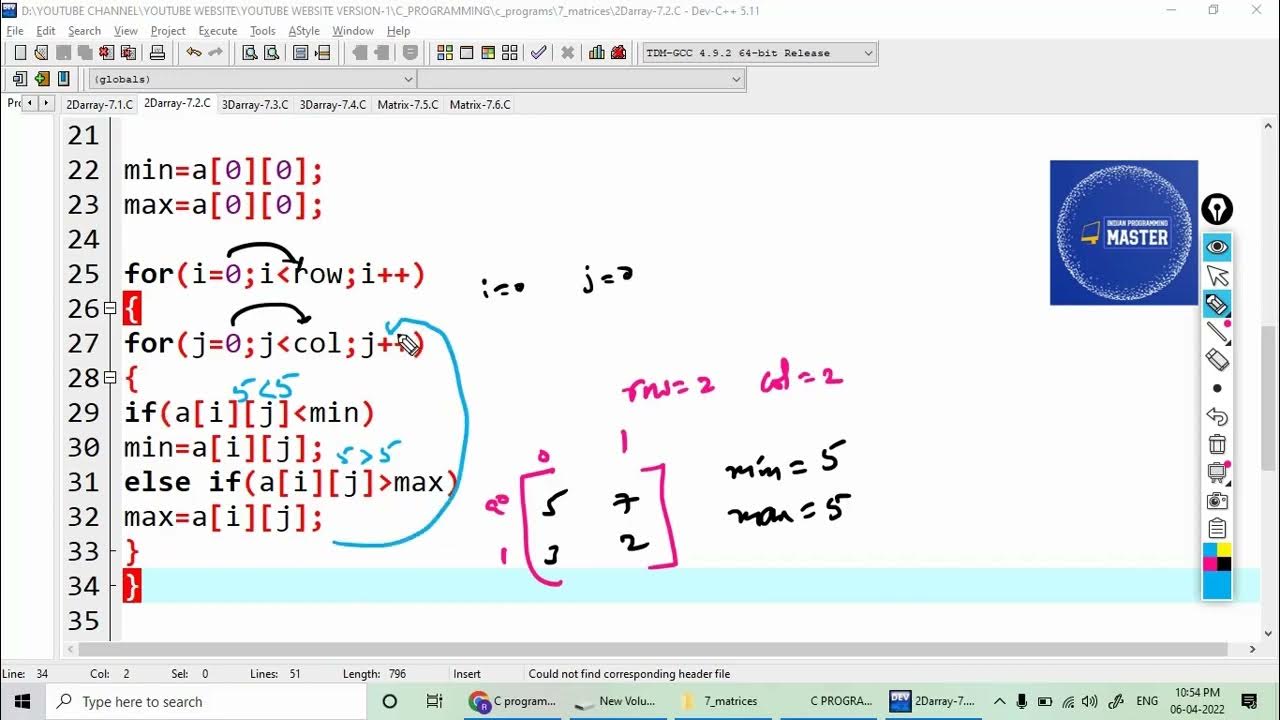 D:\YOUTUBE CHANNEL\YOUTUBE WEBSITE\YOUTUBE WEBSITE VERSION-1\C_PROGRAMMING\c_programs\7_matrices\2Darray-7.2.C - Dev-C++ 5.11
File Edit Search View Project Execute Tools AStyle Window Help
TDM-GCC 4.9.2 64-bit Release
(globals)
2Darray-7.1.C 2Darray-7.2.C 3Darray-7.3.C 3Darray-7.4.C Matrix-7.5.C Matrix-7.6.C
21
22 min=a[0][0];
23 max=a[0][0];
24
25 for(i=0;i<row;i++)
i=0 j=0
26 {
27 for(j=0;j<col;j++)
28 {
5<5
row=2 col=2
29 if(a[i][j]<min)
30 min=a[i][j];
5>5
31 else if(a[i][j]>max)
32 max=a[i][j];
33 }
34 }
35
0 1
0 5 7
1 3 2
min=5
max=5
INDIAN PROGRAMMING
MASTER
Line: 34 Col: 2 Sel: 0 Lines: 51 Length: 796 Insert Could not find corresponding header file
Type here to search
C program... New Volu... 7_matrices C PROGRA... 2Darray-7....
ENG
10:54 PM
06-04-2022